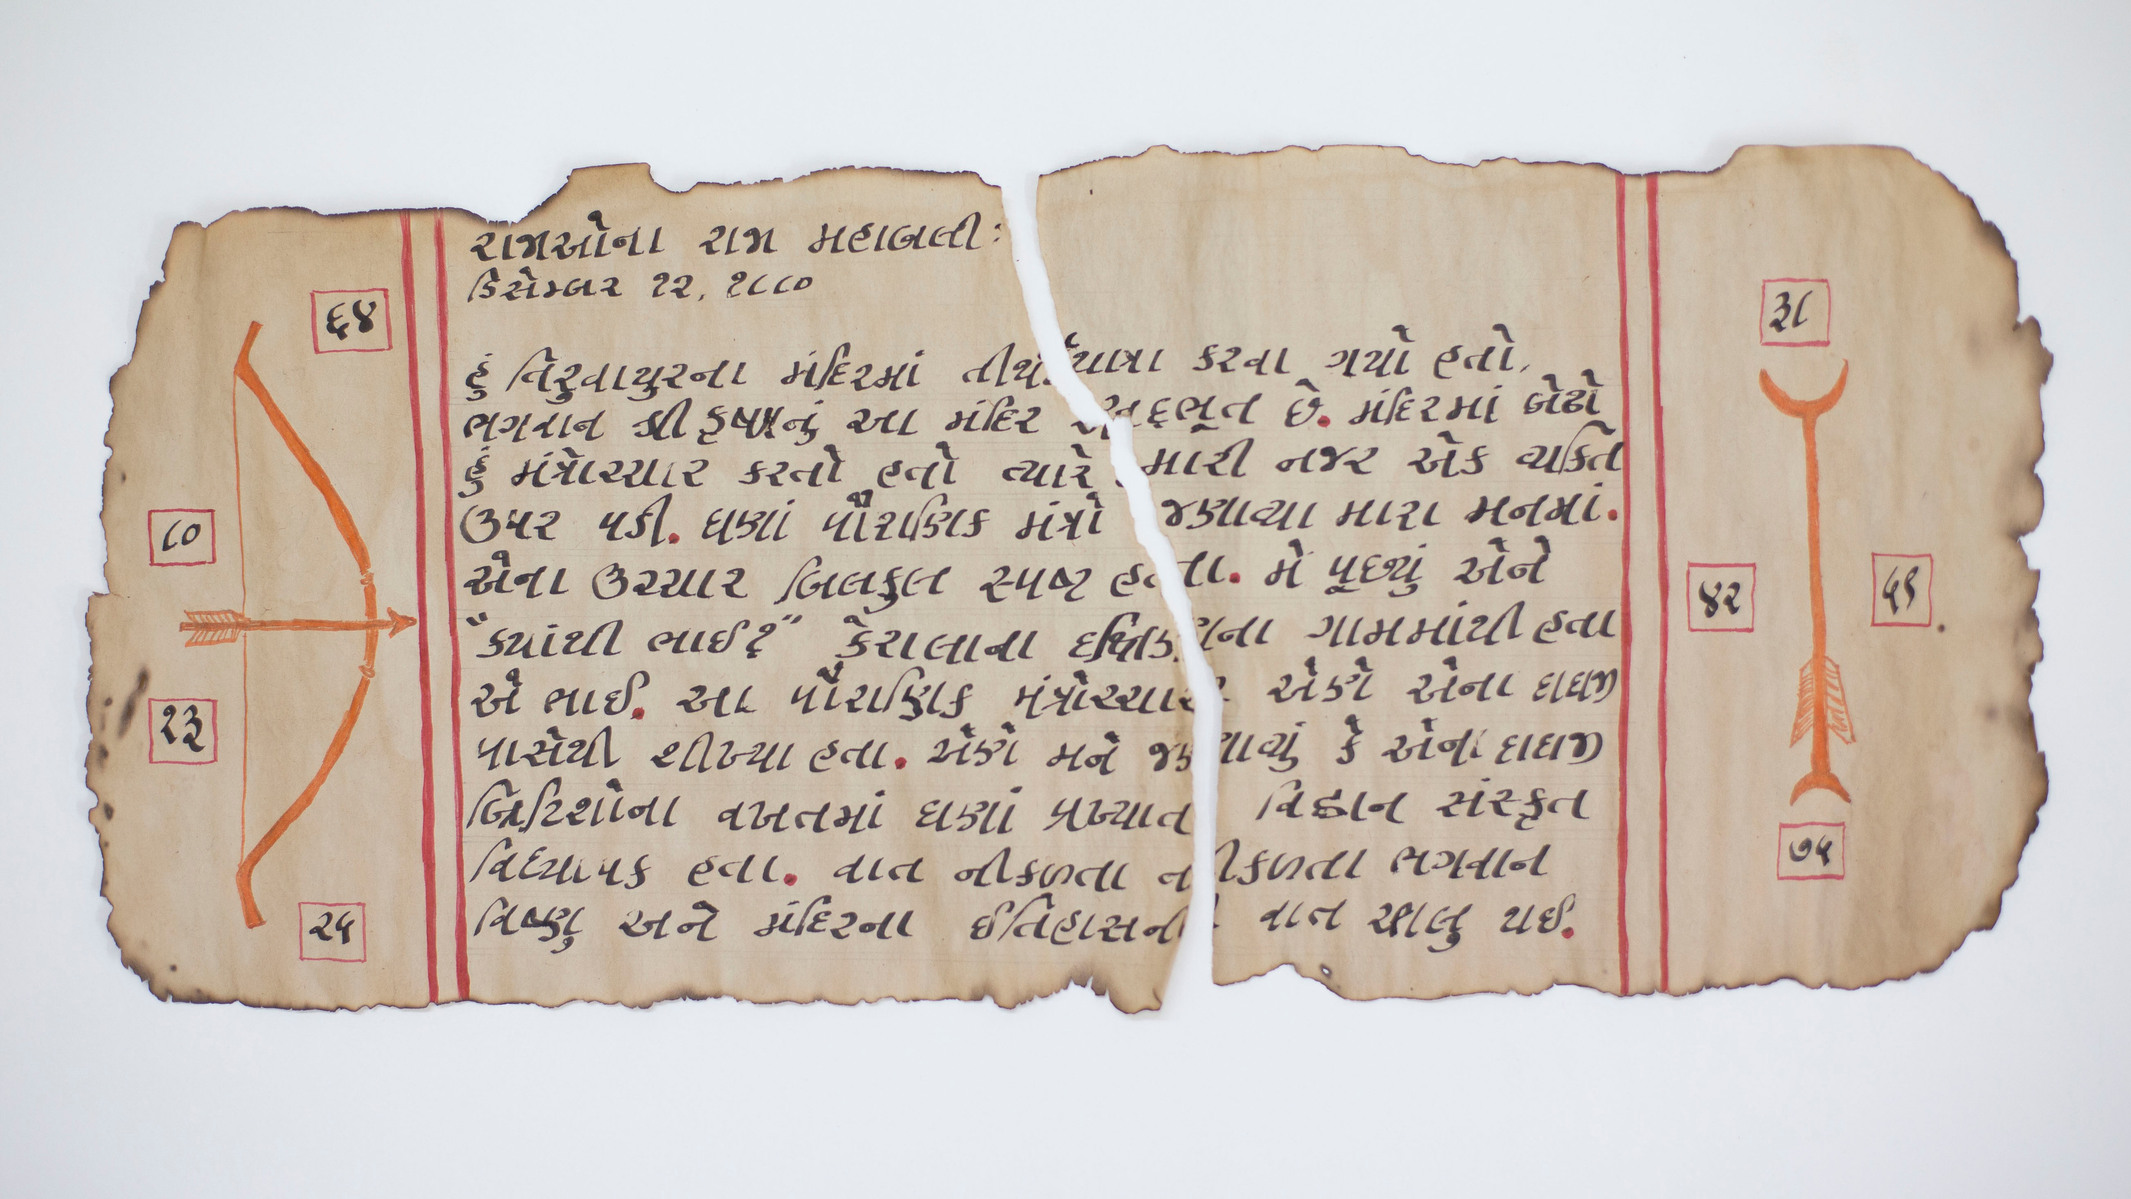 ૬૪
૮૦
૨૩
૨૫
રાજાઓના રાજા મહાબલી:
ડિસેમ્બર ૨૨, ૧૮૮૦
હું તિરુવાયુરના મંદિરમાં તીર્થયાત્રા કરવા ગયો હતો.
ભગવાન શ્રી કૃષ્ણનું આ મંદિર અદભૂત છે. મંદિરમાં બેઠો
હું મંત્રોચ્ચાર કરતો હતો ત્યારે મારી નજર એક વ્યક્તિ
ઉપર પડી. ઘણાં પૌરાણિક મંત્રો જણાવ્યા મારા મનમાં.
એના ઉચ્ચાર બિલકુલ સ્પષ્ટ હતા. મેં પૂછ્યું એને
"ક્યાંથી ભાઈ?" કેરાલાના દક્ષિણના ગામમાંથી હતા
એ ભાઈ. આ પૌરાણિક મંત્રોચ્ચાર એણે એના દાદાજી
પાસેથી શીખ્યા હતા. એણે મને જણાવ્યું કે એના દાદાજી
બ્રિટિશોના વખતમાં ઘણાં પ્રખ્યાત વિદ્વાન સંસ્કૃત
વિદ્યાપક હતા. વાત નીકળતા નીકળતા ભગવાન
વિષ્ણુ અને મંદિરના ઈતિહાસની વાત ચાલુ થઈ.
૩૮
૪૨
૫૧
૭૫